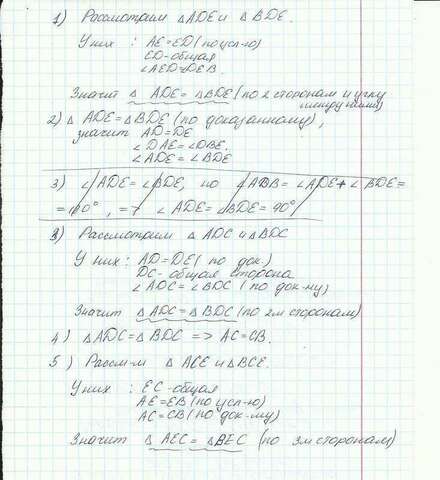 1) Рассмотрим △ ADE и △ BDE.
У них : AE=ED (по усл-ю)
ED-общая
∠AED=∠DEB.
Значит △ ADE=△BDE (по 2 сторонам и углу
между ними)
2) △ ADE=△BDE (по доказанному),
значит AD=DE
∠DAE=∠DBE.
∠ADE=∠BDE
3) ∠ADE=∠BDE, но ∠ADB=∠ADE+∠BDE=
=180°, => ∠ADE=∠BDE=90°
3) Рассмотрим △ ADC и △BDC
У них: AD=DE (по док.)
DC-общая сторона
∠ADC=∠BDC (по док-му)
Значит △ADC=△BDC (по 2м сторонам)
4) △ADC=△BDC => AC=CB.
5) Рассм-м △ ACE и △BCE.
У них : EC-общая
AE=EB (по усл-ю)
AC=CB (по док-му)
Значит △AEC=△BEC (по 3м сторонам)